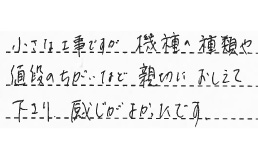 小さな工事ですが 機種の種類や
値段のちがいなど 親切に おしえて
下さり 感じがよかったです。